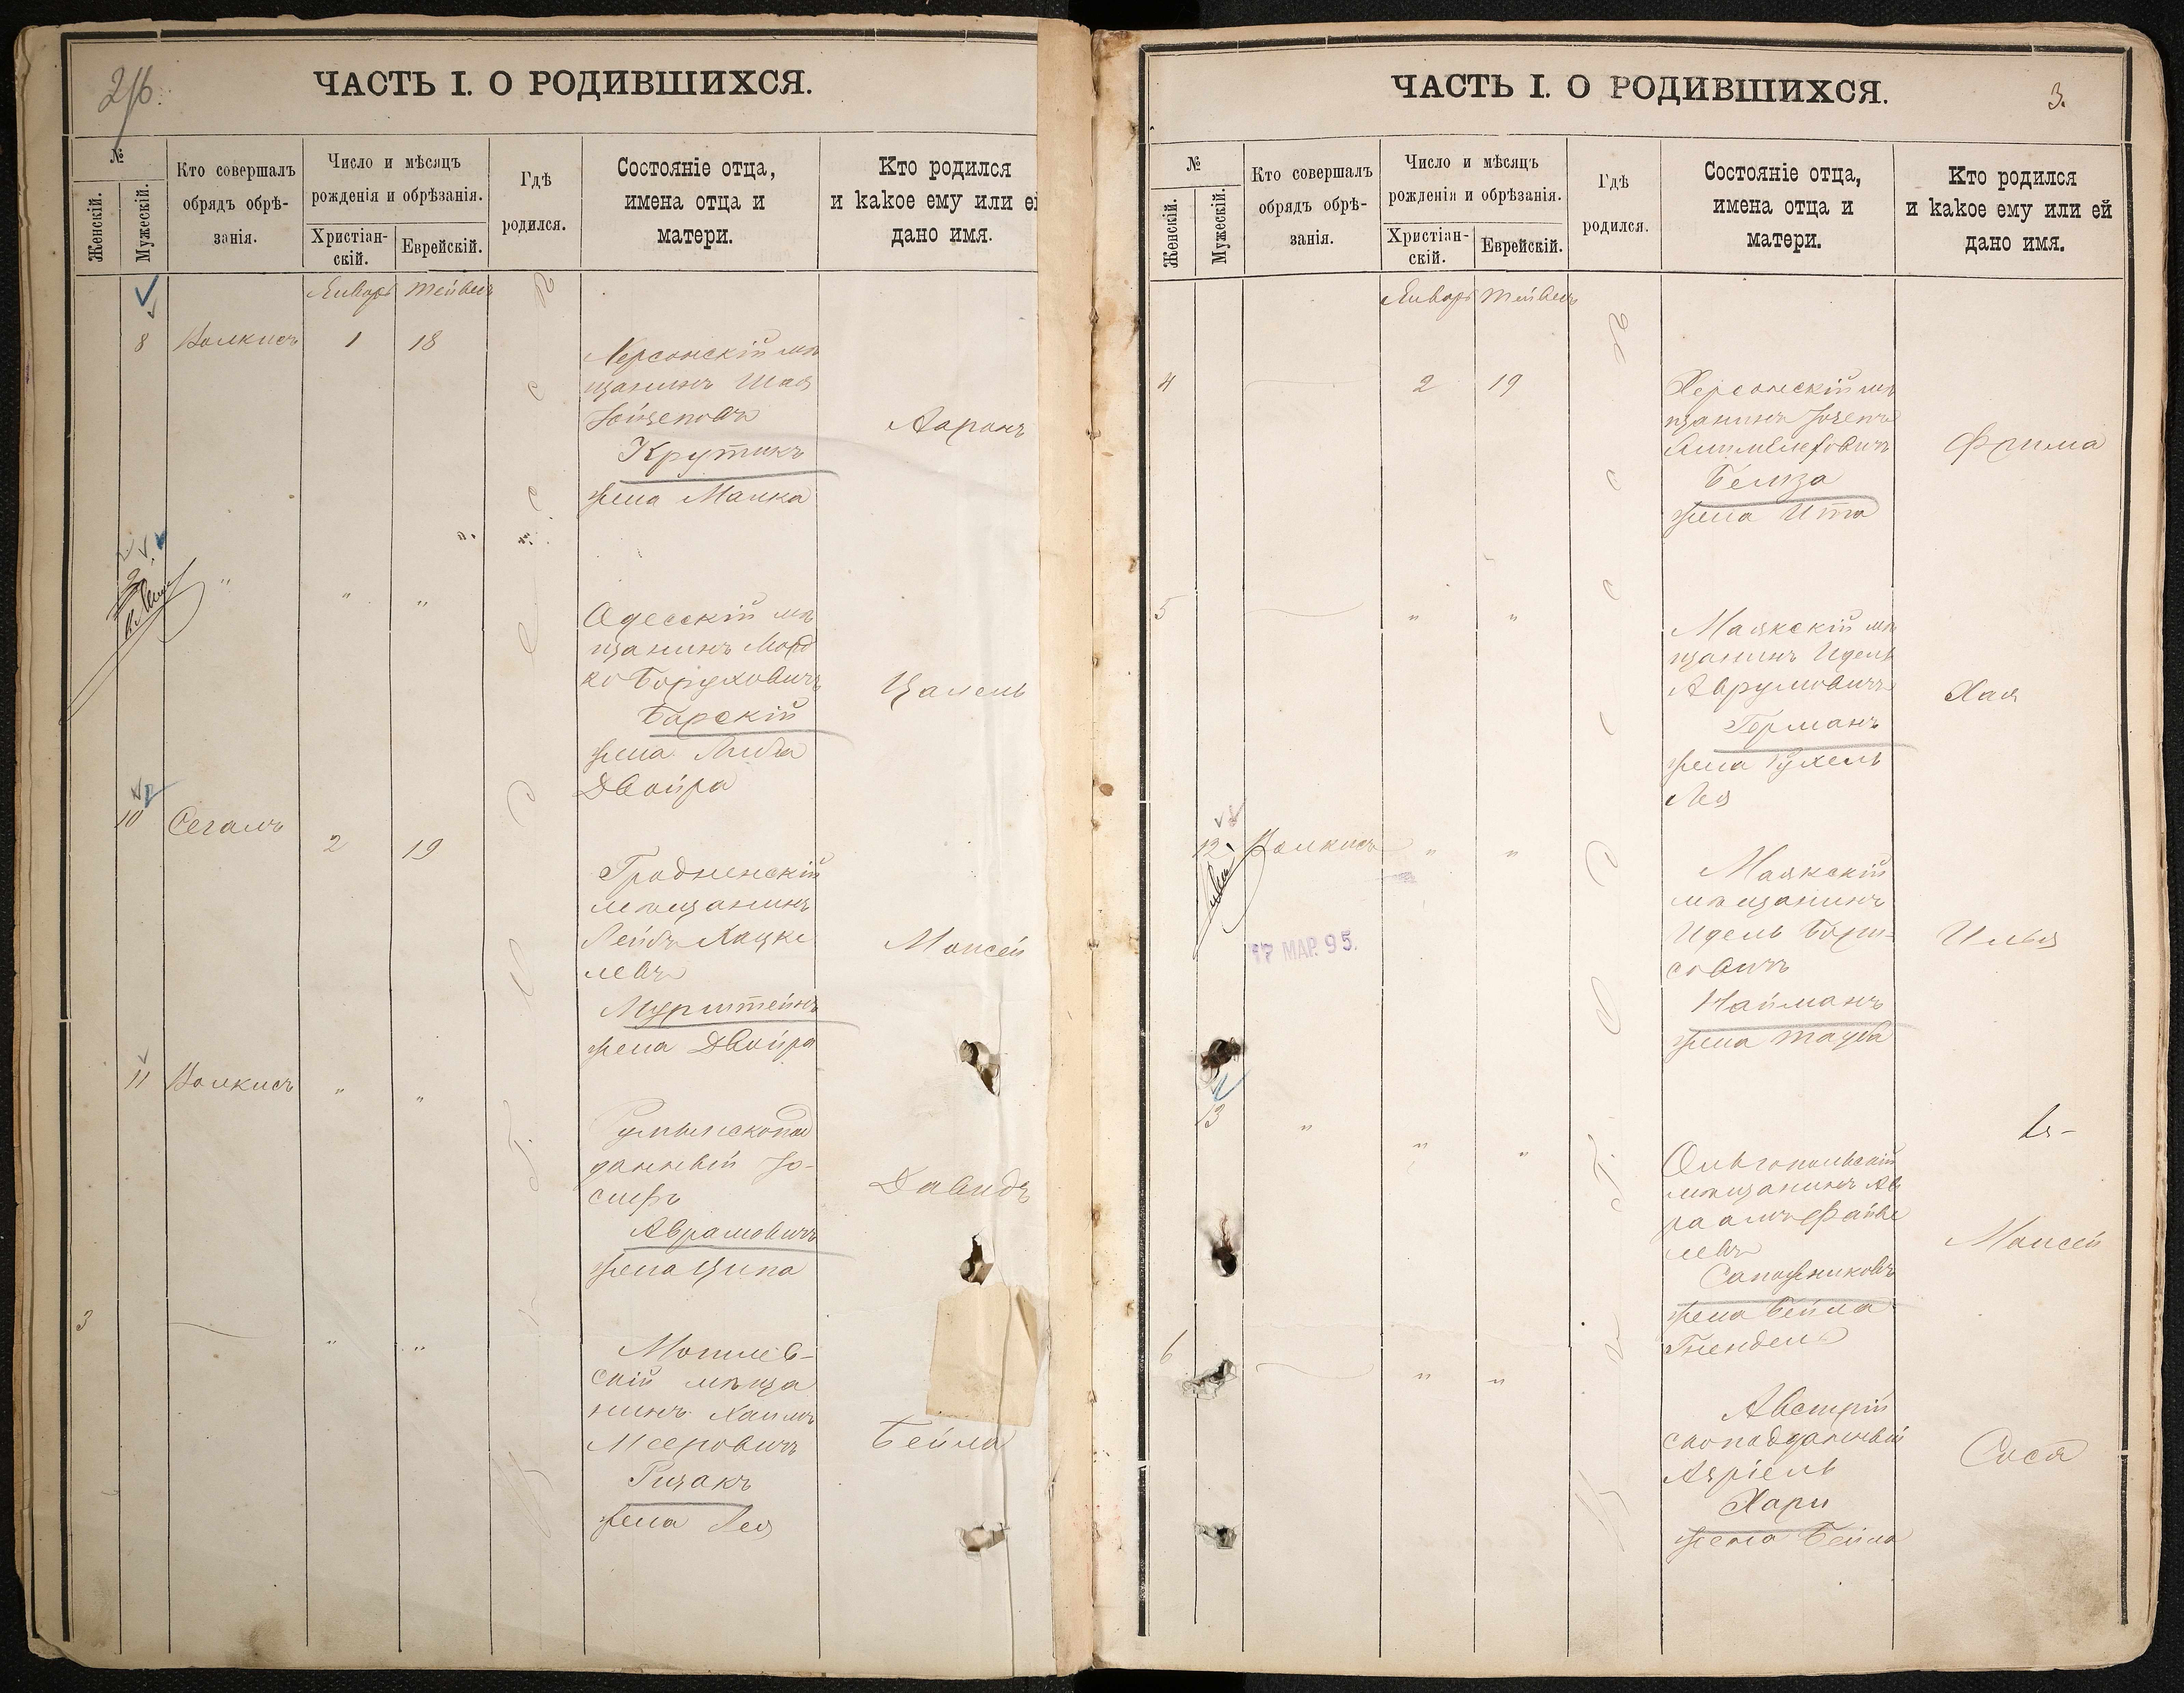 2/б.
ЧАСТЬ I. О РОДИВШИХСЯ.
№
Женскій.
Мужескій.
Кто совершалъ
обрядъ обрѣ-
занія.
Число и мѣсяцъ
рожденія и обрѣзанія.
Христіан-
скій.
Еврейскій.
Гдѣ
родился.
Состояніе отца,
имена отца и
матери.
Кто родился
и какое ему или ей
дано имя.
Январь Тейвесъ
8 Волкисъ 1 18
Херсонскій мѣ
щанинъ Шая
Іойзеповъ
Крутикъ
жена Малка
Ааронъ
9 " " "
Одесскій мѣ
щанинъ Морд
ко Боруховичъ
Барскій
жена Либа
Двойра
Цалель
10 Сегалъ 2 19
Гродненскій
мѣщанинъ
Лейбъ Хацке
левъ
Мурштейнъ
жена Двойра
Моисей
11 Волкисъ " "
Румынскопод
данный Іо-
сифъ
Аврамовичъ
жена Ципа
Давидъ
3 " "
Могилев-
скій мѣща
нинъ Хаимъ
Мееровичъ
Ризакъ
жена Лея
Бейла
ЧАСТЬ I. О РОДИВШИХСЯ.
3.
№
Женскій.
Мужескій.
Кто совершалъ
обрядъ обрѣ-
занія.
Число и мѣсяцъ
рожденія и обрѣзанія.
Христіан-
скій.
Еврейскій.
Гдѣ
родился.
Состояніе отца,
имена отца и
матери.
Кто родился
и какое ему или ей
дано имя.
Январь Тейвесъ
4 2 19
Херсонскій мѣ
щанинъ Іозепъ
Белза
жена Ита
Фрима
5 " "
Маякскій мѣ
щанинъ Идель
Аврумовичъ
Германъ
жена Рухель
Лея
Хая
12 Волкисъ " "
17 МАР. 95.
Маякскій
мѣщанинъ
Идель Бори-
совичъ
Найманъ
жена Тауба
Илья
13 " " "
Ольгопольскій
мѣщанинъ Ав
раамъ Файве
левъ
Сапожниковъ
жена Бейла
Гнендель
Моисей
6 " "
Австрій
скоподданный
Азріель
Хари
жена Бейла
Сося